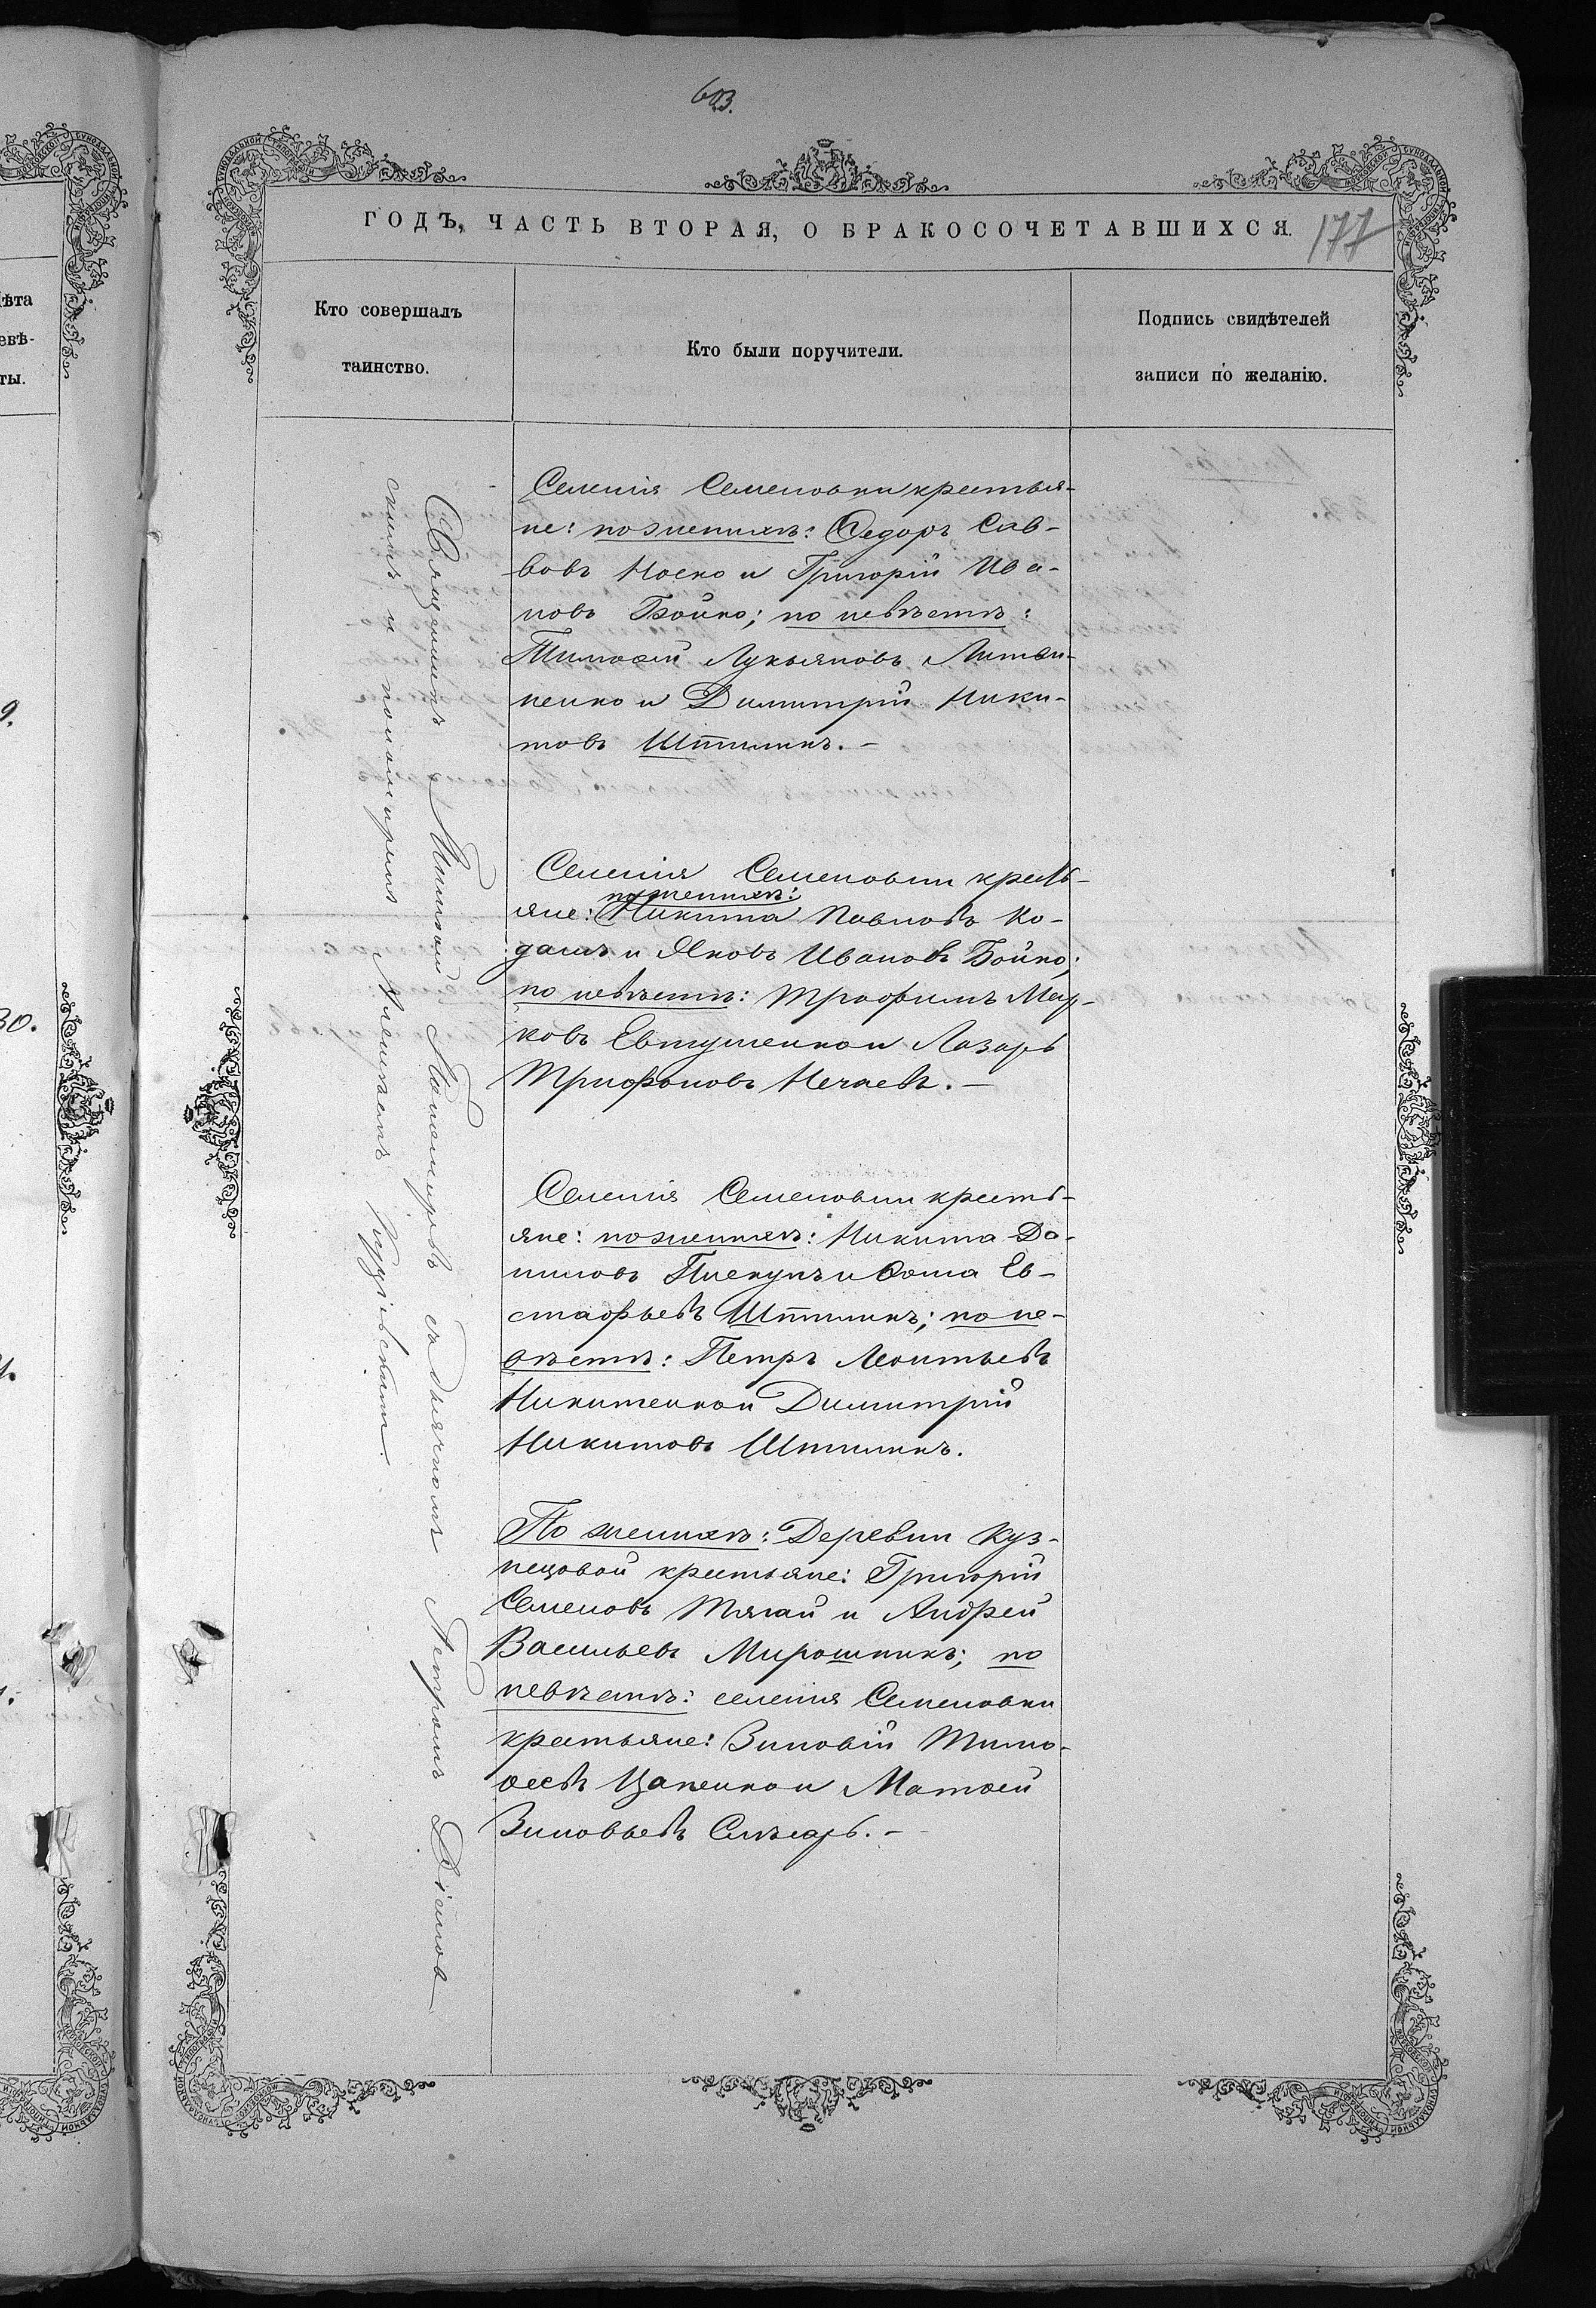 603.
ГОДЪ, ЧАСТЬ ВТОРАЯ, О БРАКОСОЧЕТАВШИХСЯ.
177
Кто совершалъ
таинство.
Кто были поручители.
Подпись свидѣтелей
записи по желанію.
Священникъ Матвій съ дьячкомъ Петромъ
скимъ и пономаремъ Алексѣемъ
Селенія Семеновки крестья-
не: по женихѣ: Ѳедоръ Сав-
вовъ Носко и Григорій Ива-
новъ Бойко; по невѣстѣ:
Тимоѳей Лукьяновъ Литви-
ненко и Димитрій Ники-
товъ Штыликъ. —
Селенія Семеновки кресть-
по женихѣ:
яне: Никита Павловъ Ко-
дашъ и Яковъ Ивановъ Бойко;
по невѣстѣ: Трофимъ Мар-
ковъ Евтушенко и Лазарь
Трифоновъ Нечаевъ. —
Селенія Семеновки кресть-
яне: по женихѣ: Никита Да-
ниловъ и Ѳома Ев-
стафьевъ Штыликъ; по не-
вѣстѣ: Петръ Леонтьевъ
Никитенко и Димитрій
Никитовъ Штыликъ.
По женихѣ: Деревни Куз-
нецовой крестьяне: Григорій
Семеновъ Тягай и Андрей
Васильевъ Мирошникъ; по
невѣстѣ: селенія Семеновки
крестьяне: Зиновій Тимо-
ѳеевъ Цапенко и Матѳей
Зиновьевъ Слѣсарь. —
9.
30.
ѣта
евѣ-
ты.